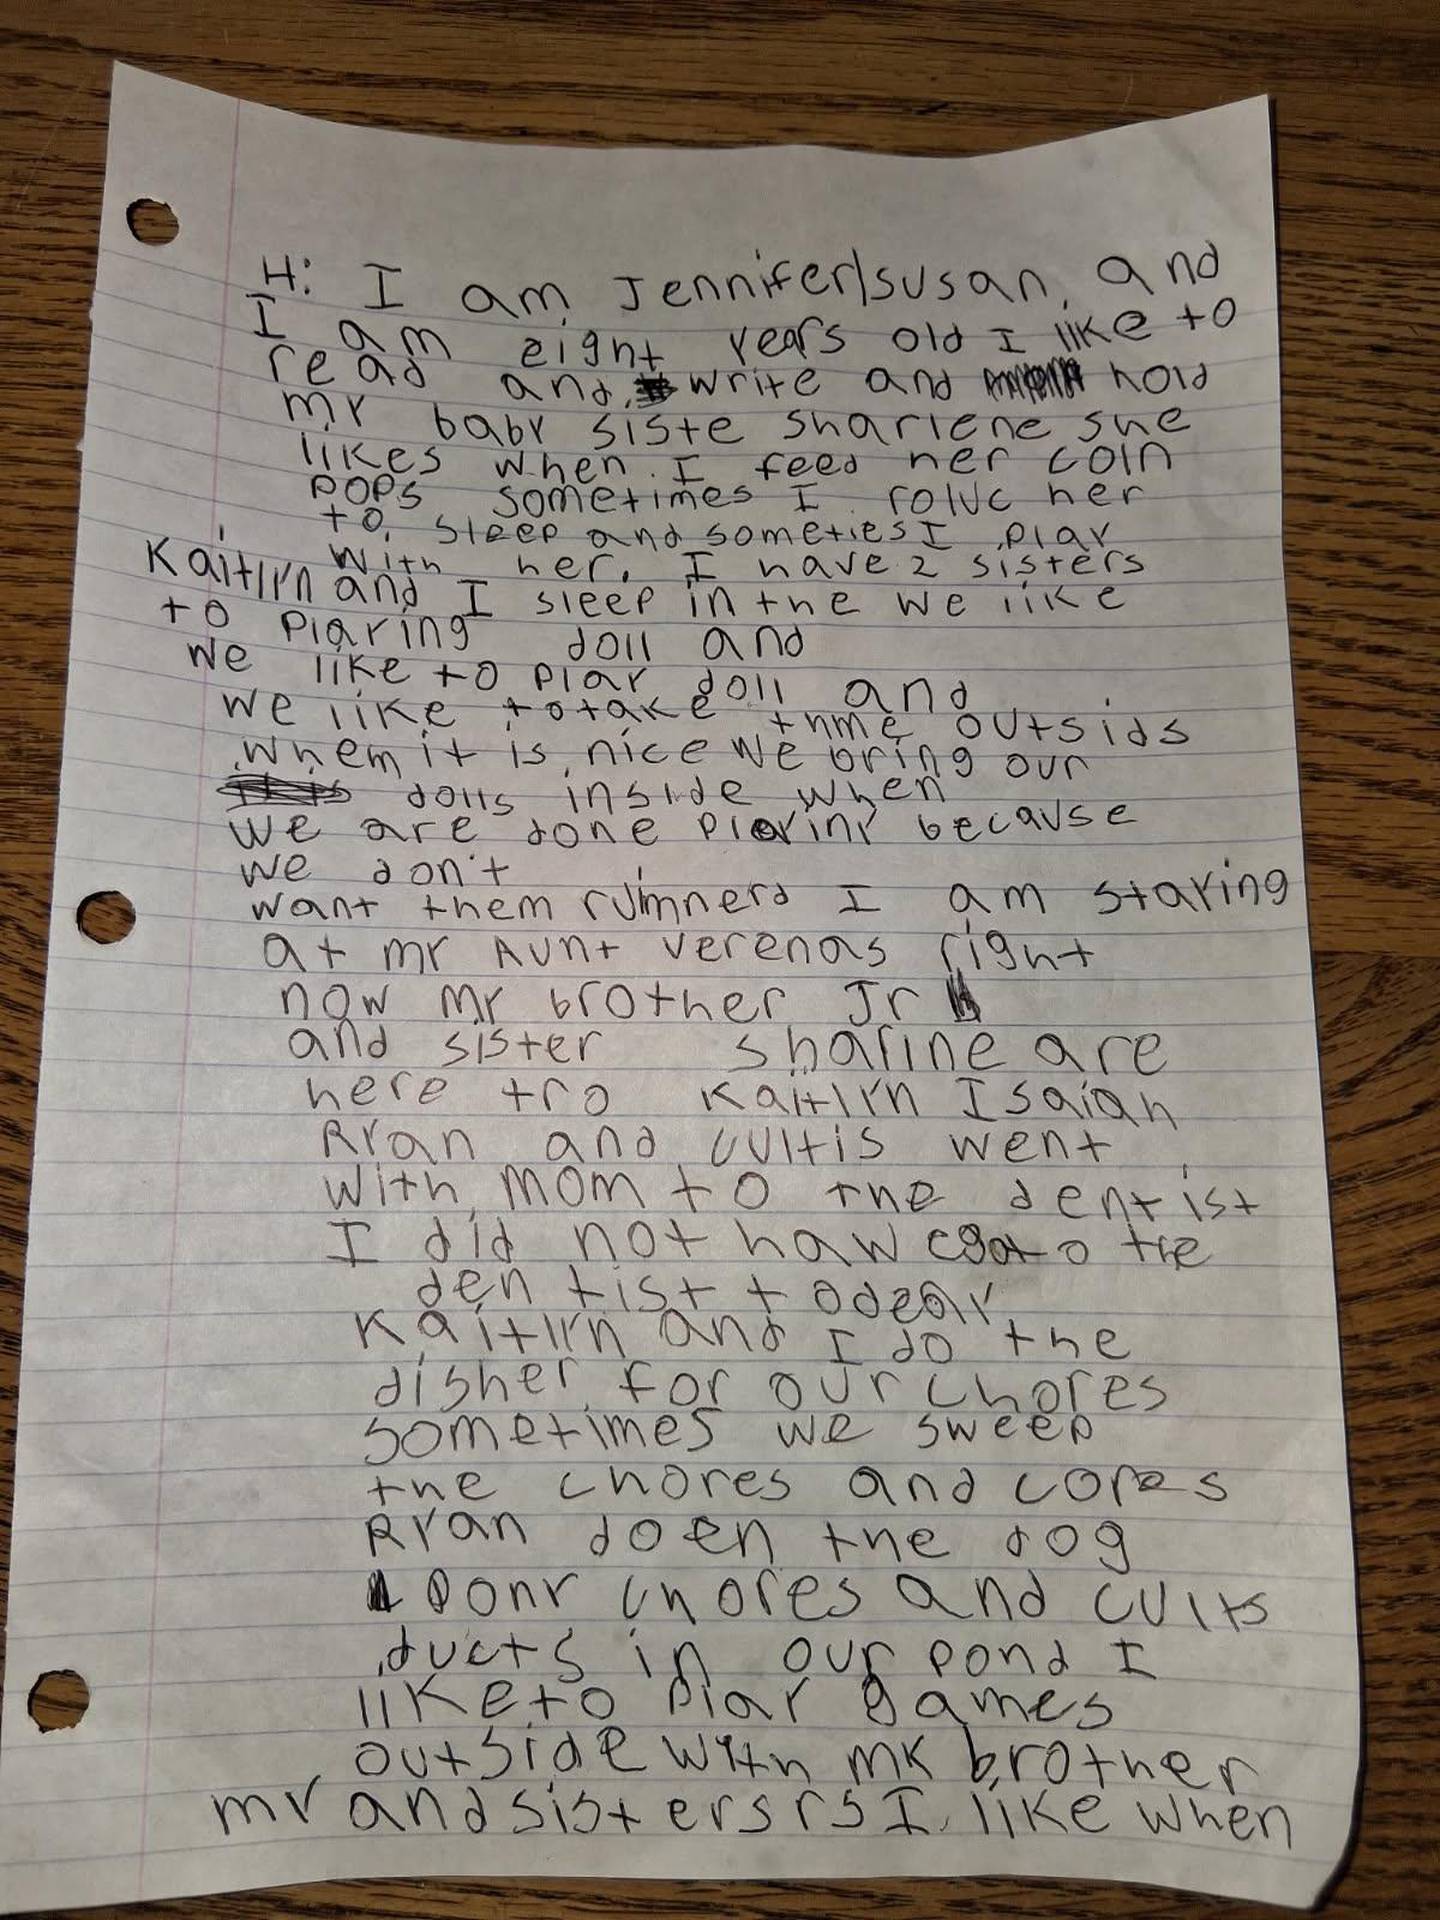 Hi I am Jennifer/susan, and
I am eight years old I like to
read and write and hold
my baby siste sharlene she
likes when I feed her coin
pops sometimes I her
to sleep and someties I play
with her. I have 2 sisters
Kaitlyn and I sleep in the we like
to playing doll and
we like to play doll and
we like to take thme outsids
when it is nice we bring our
dolls inside when
we are done because
we don't
want them I am staying
at my Aunt verenas right
now my brother Jr
and sister sharline are
here too Kaitlyn Isaiah
Ryan and cultis went
with mom to the dentist
I did not haw to the
dentist today
Kaitlyn and I do the
disher for our chores
sometimes we sweep
the chores and cores
Ryan doen the dog
pony chores and cults
ducts in our pond I
like to play games
outside with my brother
my and sistersrs I like when